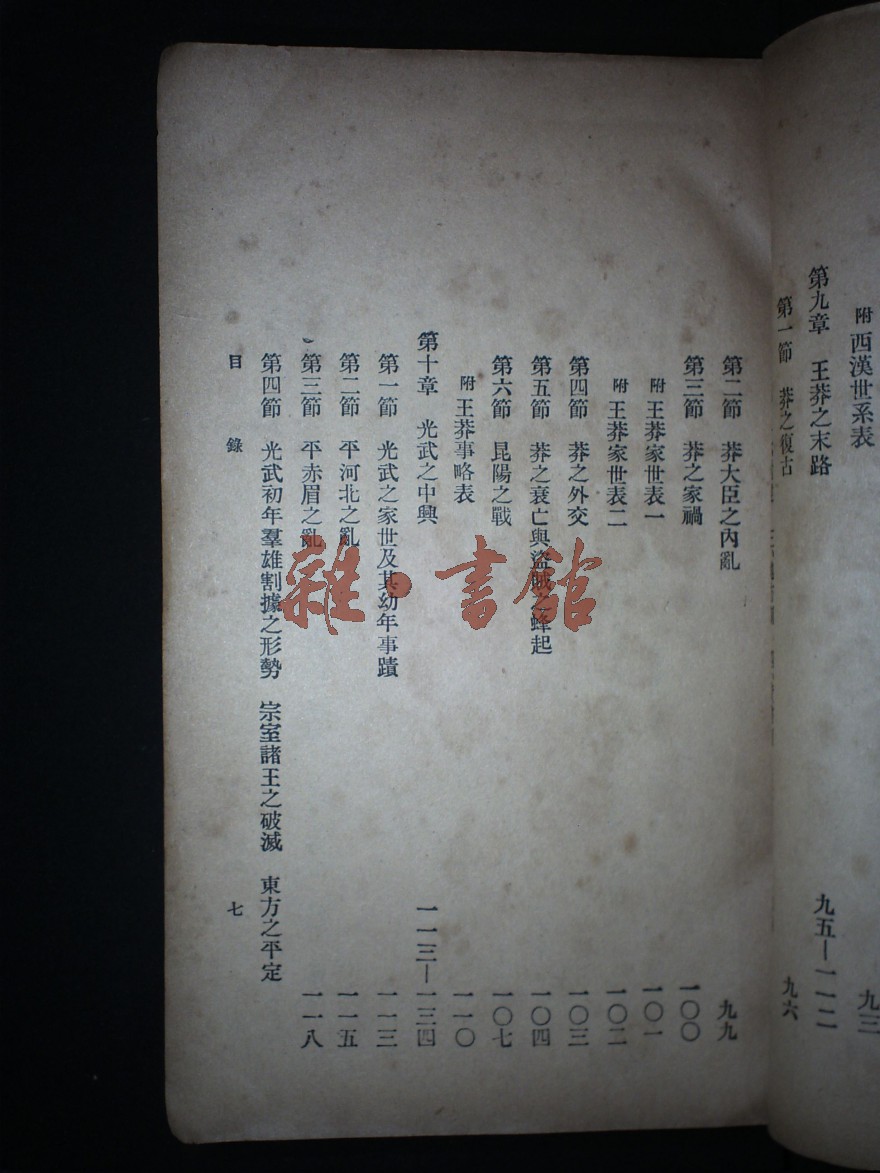 附 西漢世系表 九三
第九章 王莽之末路 九五—一一二
第一節 莽之復古 九六
第二節 莽大臣之內亂 九九
第三節 莽之家禍 一〇〇
附 王莽家世表一 一〇一
附 王莽家世表二 一〇二
第四節 莽之外交 一〇三
第五節 莽之衰亡與盜賊之蜂起 一〇四
第六節 昆陽之戰 一〇七
附 王莽事略表 一一〇
第十章 光武之中興 一一三—一三四
第一節 光武之家世及其幼年事蹟 一一三
第二節 平河北之亂 一一五
第三節 平赤眉之亂 一一八
第四節 光武初年羣雄割據之形勢 宗室諸王之破滅 東方之平定
目錄 七
雜·書館